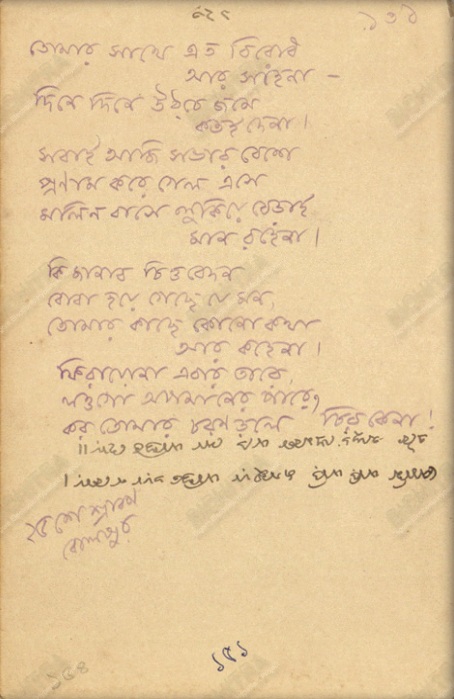 তোমার সাথে এত বিরোধ
আর সহেনা –
দিনে দিনে উঠ্‌চে জমে
কতই দেনা।
সবাই আজি সভার বেশে
প্রণাম করে গেল এসে
মলিন বাসে লুকিয়ে বেড়াই
মান রহেনা।
কি জানাব চিত্তবেদন
বোবা হয়ে গেছে যে মন,
তোমার কাছে কোনো কথা
আর কহেনা।
ফিরায়োনা এবার তারে,
লওগো অপমানের পারে,
কর তোমার চরণতলে চির কেনা!
২৫শে শ্রাবণ
বোলপুর
১৫১